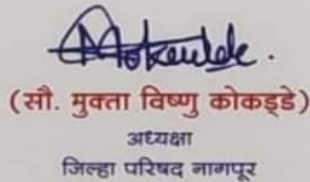 (सौ. मुक्ता विष्णु कोकड्डे)
अध्यक्षा
जिल्हा परिषद नागपूर